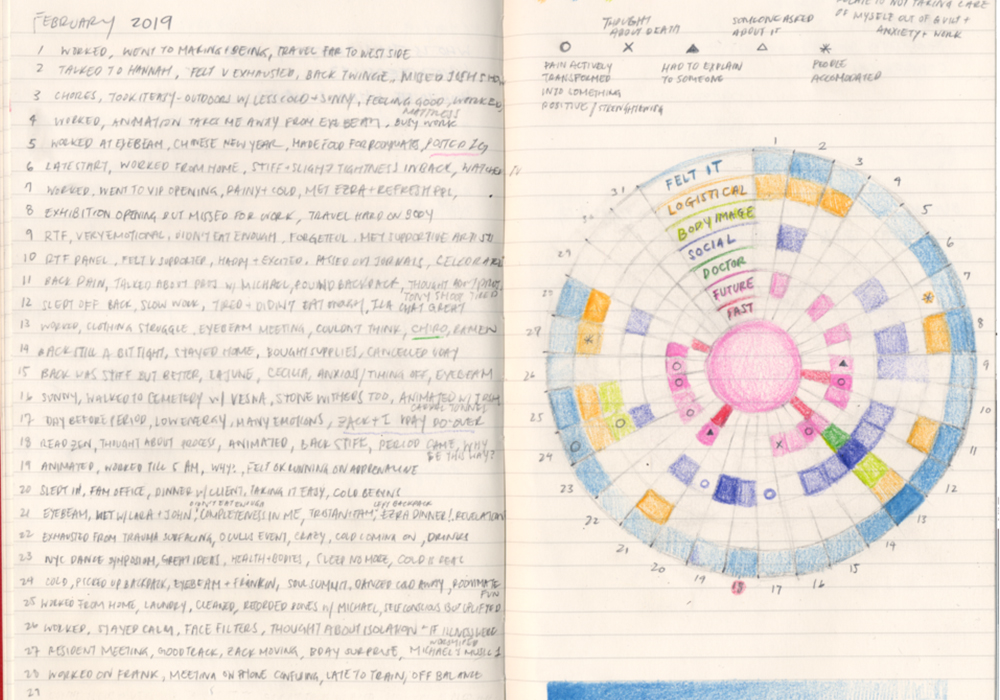 FEBRUARY 2019
1 WORKED, WENT TO MAKING + BEING, TRAVEL FAR TO WEST SIDE
2 TALKED TO HANNAH, FELT V EXHAUSTED, BACK TWINGE, MISSED
3 CHORES, TOOK IT EASY - OUTDOORS W/ LESS COLD + SUNNY, FEELING GOOD, WORKED
4 WORKED, ANIMATION TAKES ME AWAY FROM EYEBEAM, BUSY WORK
MATTRESS
5 WORKED AT EYEBEAM, CHINESE NEW YEAR, MADE FOOD FOR ROOMMATE, POSTED
6 LATE START, WORKED FROM HOME, STIFF + SLIGHT TIGHTNESS IN BACK, WATCHED TV
7 WORKED, WENT TO VIP OPENING, RAINY + COLD, MET EZRA + REFRESH PPL,
8 EXHIBITION OPENING BUT MISSED FOR WORK, TRAVEL HARD ON BODY
9 RTF, VERY EMOTIONAL, DIDN'T EAT ENOUGH, FORGETFUL, MET SUPPORTIVE ARTISTS
10 RTF PANEL, FELT V SUPPORTED, HAPPY + EXCITED, PASSED OUT JOURNALS, CELEBRATE
11 BACK PAIN, TALKED ABOUT W/ MICHAEL, FOUND BACKPACK, THOUGHT ABT
12 SLEPT OFF BACK, SLOW WORK, TIRED + DIDN'T EAT MUCH, CHAT GREAT
TONY SHOOT TIRED
13 WORKED, CLOTHING STRUGGLE, EYEBEAM MEETING, COULDN'T THINK, CHIRO, RAMEN
14 BACK STILL A BIT TIGHT, STAYED HOME, BOUGHT SUPPLIES, CANCELLED VDAY
15 BACK WAS STIFF BUT BETTER, LAJUNE, CECILIA, ANXIOUS/TIMING OFF, EYEBEAM
16 SUNNY, WALKED TO CEMETERY W/ VESNA, STONE WITHERS TOO, ANIMATED W/
17 DAY BEFORE PERIOD, LOW ENERGY, MANY EMOTIONS, ZACK + I VDAY DO-OVER
18 READ ZEN, THOUGHT ABOUT PROCESS, ANIMATED, BACK STIFF, PERIOD CAME, WHY
BE THIS WAY?
19 ANIMATED, WORKED TILL 5 AM, WHY?, FELT OK RUNNING ON ADRENALINE
20 SLEPT IN, FAM OFFICE, DINNER W/ CLIENT, TAKING IT EASY, COLD BEGINS
DIDN'T EAT ENOUGH LEFT BACKPACK
21 EYEBEAM, MET W/ LARA + JOHN, COMPLETENESS IN ME, EZRA DINNER!, REVELATION
22 EXHAUSTED FROM TRAUMA SURFACING, OCULUS EVENT, CRAZY, COLD COMING ON, DRINKS
23 NYC DANCE SYMPOSIUM, GREAT IDEAS, HEALTH + BODIES, SLEEP NO MORE, COLD IS REAL
24 COLD, PICKED UP BACKPACK, EYEBEAM + FRANKLIN, SOUL SUMMIT, DANCED COLD AWAY, ROOMMATE
FUN
25 WORKED FROM HOME, LAUNDRY, CLEANED, RECORDED BONES W/ MICHAEL, SELF CONSCIOUS BUT UPLIFTED
26 WORKED, STAYED CALM, FACE FILTERS, THOUGHT ABOUT ISOLATION + IF ILLNESS WERE
WORSHIPED
27 RESIDENT MEETING, GOOD TRACK, ZACK MOVING, BDAY SURPRISE, MICHAEL'S MUSIC
28 WORKED ON FRANK, MEETING ON PHONE CONFUSING, LATE TO TRAIN, OFF BALANCE
29
RELATE TO NOT TAKING CARE
OF MYSELF OUT OF GUILT +
ANXIETY + WORK
THOUGHT
ABOUT DEATH
SOMEONE ASKED
ABOUT IT
PAIN ACTIVELY
TRANSFORMED
INTO SOMETHING
POSITIVE / STRENGTHENING
HAD TO EXPLAIN
TO SOMEONE
PEOPLE
ACCOMMODATED
FELT IT
LOGISTICAL
BODY IMAGE
SOCIAL
DOCTOR
FUTURE
PAST
1
2
3
4
5
6
7
8
9
10
11
12
13
14
15
16
17
18
19
20
21
22
23
24
25
26
27
28
29
31